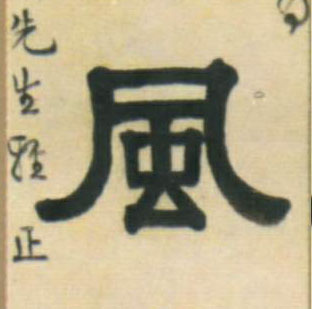 風
先生雅正